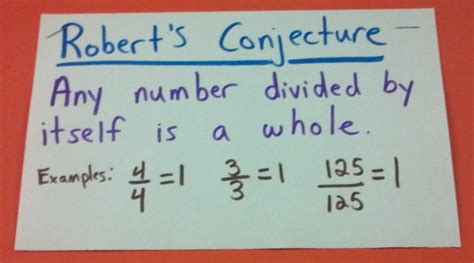 Robert's Conjecture –
Any number divided by
itself is a whole.
Examples: 4/4 = 1 3/3 = 1 125/125 = 1